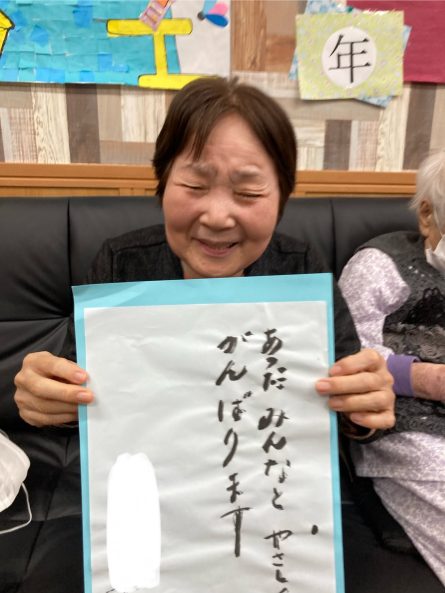 年
みんなと やさしく
がんばります